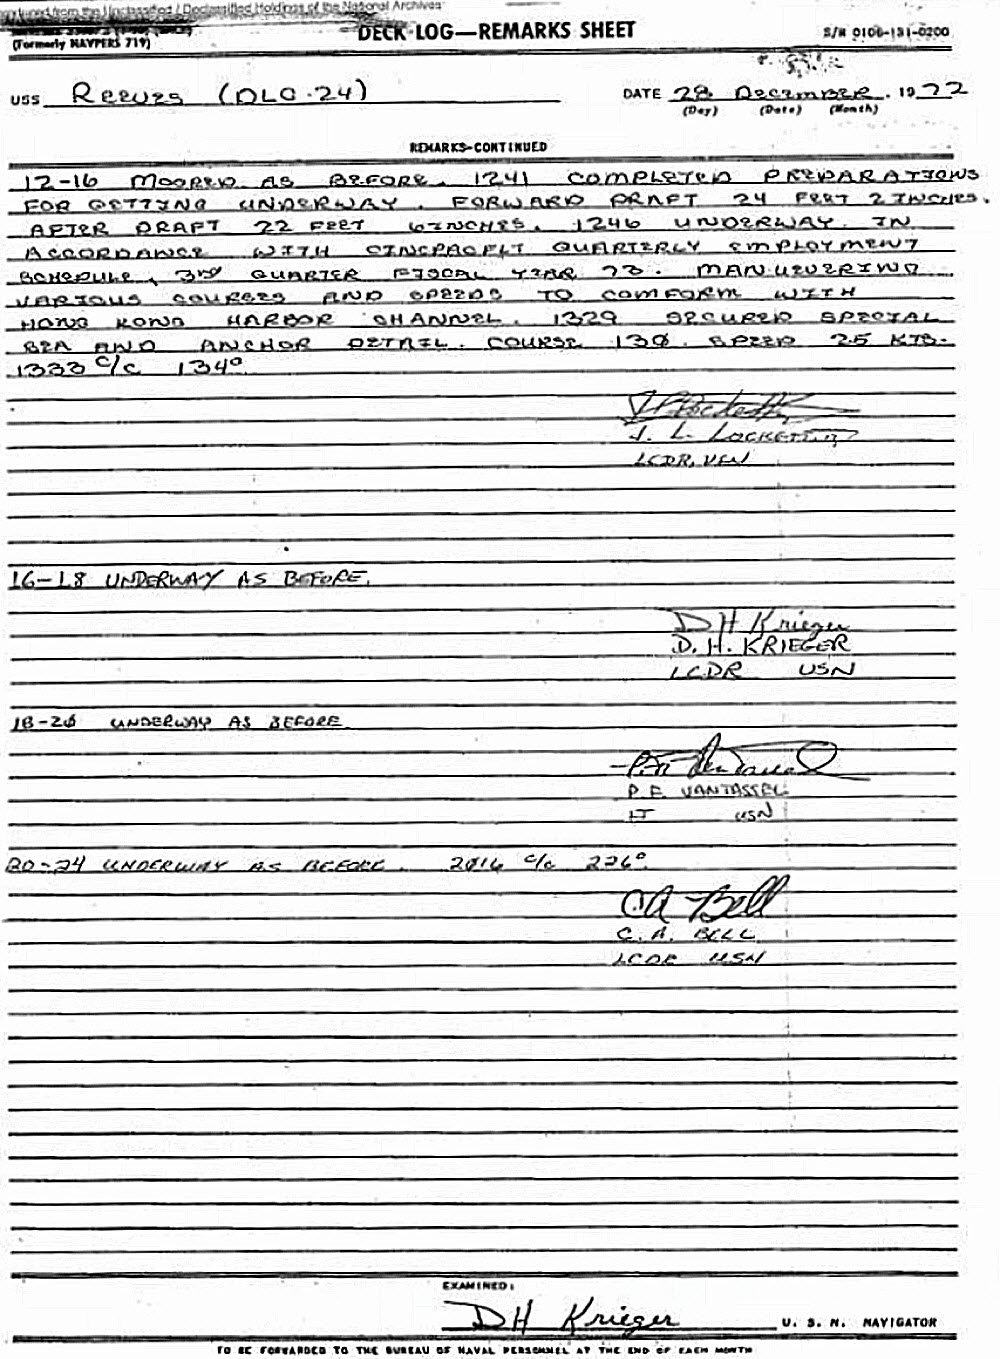 Reproduced from the Unclassified / Declassified Holdings of the National Archives
(Formerly NAVPERS 719)
DECK LOG—REMARKS SHEET
S/N 0106-131-0200
USS REEVES (DLG-24)
DATE 28 DECEMBER, 1972
(Day) (Date) (Month)
REMARKS-CONTINUED
12-16 MOORED AS BEFORE. 1241 COMPLETED PREPARATIONS
FOR GETTING UNDERWAY. FORWARD DRAFT 24 FEET 2 INCHES.
AFTER DRAFT 22 FEET 6 INCHES. 1246 UNDERWAY IN
ACCORDANCE WITH CINCPACFLT QUARTERLY EMPLOYMENT
SCHEDULE, 3RD QUARTER FISCAL YEAR 73. MANUEVERING
VARIOUS COURSES AND SPEEDS TO COMFORM WITH
HONG KONG HARBOR CHANNEL. 1329 SECURED SPECIAL
SEA AND ANCHOR DETAIL. COURSE 130. SPEED 25 KTS.
1333 C/C 134°
J. L. LOCKETT, III
LCDR, USN
16-18 UNDERWAY AS BEFORE.
DH Krieger
D. H. KRIEGER
LCDR USN
18-20 UNDERWAY AS BEFORE
P. E. VANTASSEL
LT USN
20-24 UNDERWAY AS BEFORE. 2016 C/C 226°
CA Bell
C. A. BELL
LCDR USN
EXAMINED:
DH Krieger U. S. N. NAVIGATOR
TO BE FORWARDED TO THE BUREAU OF NAVAL PERSONNEL AT THE END OF EACH MONTH